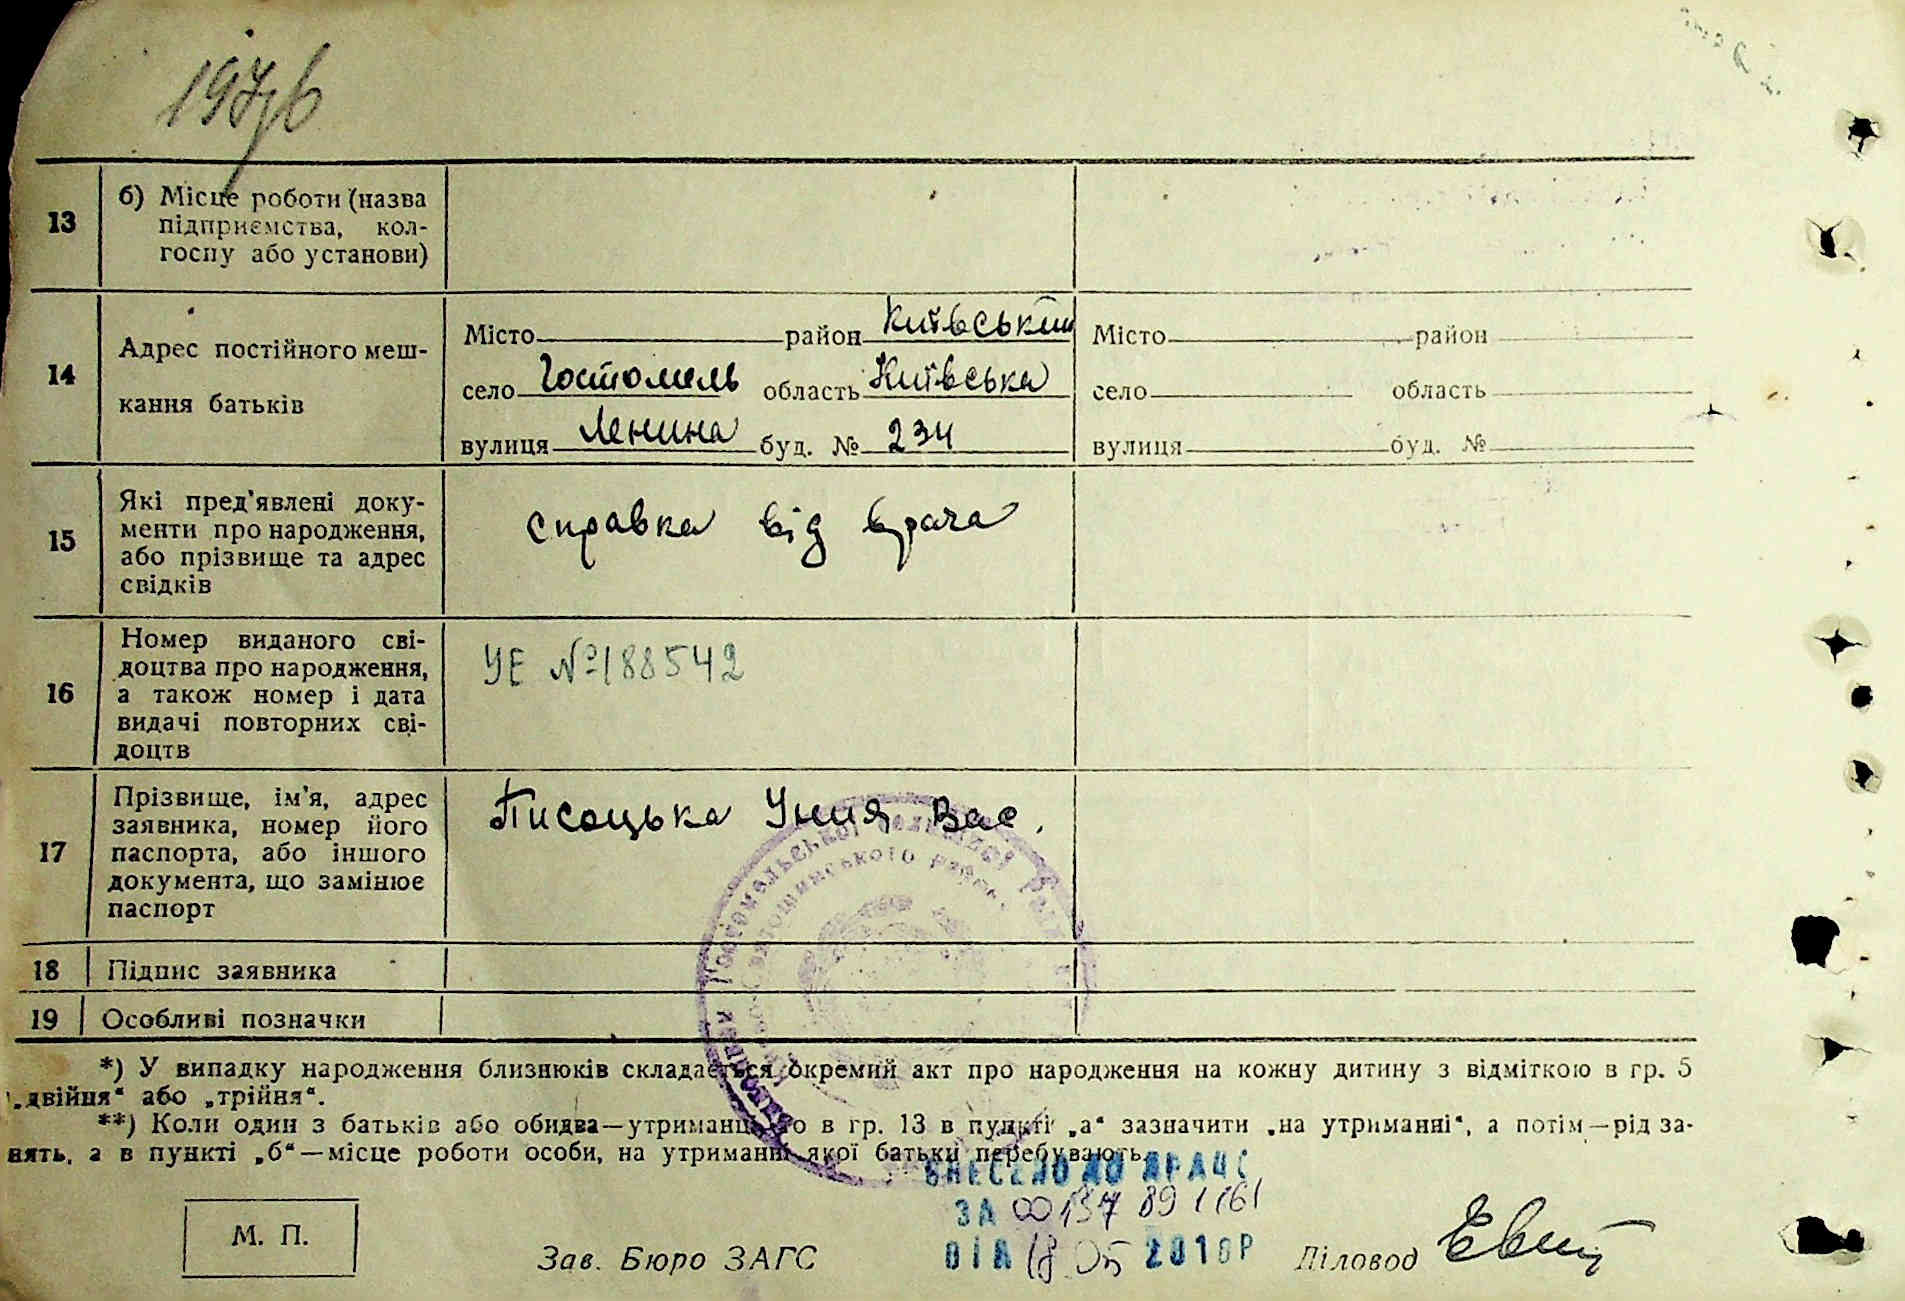 197
13
б) Місце роботи (назва
підприємства, кол-
госпу або установи)
14
Адрес постійного меш-
кання батьків
Місто район Київський
село Гостомель область Київська
вулиця Ленина буд. № 234
Місто район
село область
вулиця буд. №
15
Які пред'явлені доку-
менти про народження,
або прізвище та адрес
свідків
справка від врача
16
Номер виданого сві-
доцтва про народження,
а також номер і дата
видачі повторних сві-
доцтв
УЕ №188542
17
Прізвище, ім'я, адрес
заявника, номер його
паспорта, або іншого
документа, що замінює
паспорт
Писоцька Уния Вас.
Гостомельської селищної ради
Святошинського району
18
Підпис заявника
19
Особливі позначки
*) У випадку народження близнюків складається окремий акт про народження на кожну дитину з відміткою в гр. 5
„двійня“ або „трійня“.
**) Коли один з батьків або обидва—утриманці, то в гр. 13 в пункті „а“ зазначити „на утриманні“, а потім—рід за-
нять, а в пункті „б“—місце роботи особи, на утриманні якої батьки перебувають.
ВНЕСЕНО ДО ДРАЦС
ЗА 00137891161
ВІД 18.05 2016Р
М. П.
Зав. Бюро ЗАГС
Діловод